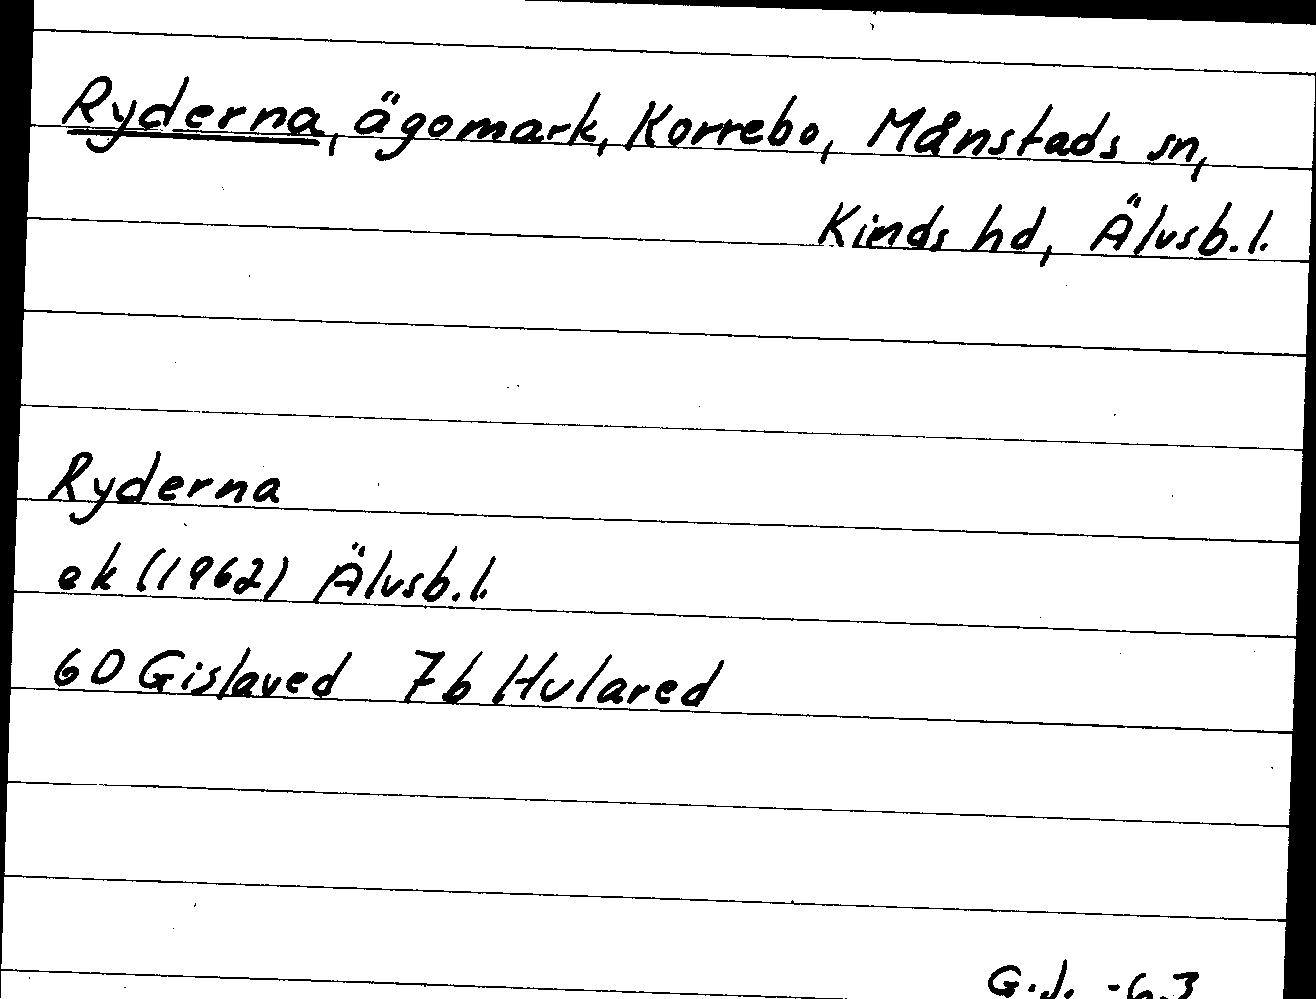 Ryderna, ägomark, Korrebo, Månstads sn,
Kinds hd, Älvsb.l.
Ryderna
ek (1962) Älvsb.l.
6D Gislaved 7b Hulared
G.J. -63